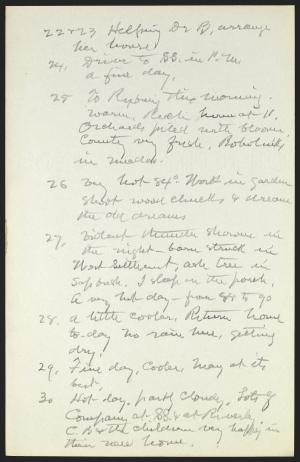 22 & 23 Helping Dr B. arrange
her house
24, Drive to SS. in P.M.
a fine day,
25 To Roxbury this morning.
warm, Reach home at 11.
Orchards piled with bloom.
Country very fresh, Bobolinks
in meadows.
26 Very hot 84° Work in garden
shoot wood chucks & dream
the old dreams
27, Violent thunder showers in
the night - barn struck in
West Settlement, ash tree in
Sap bush. I sleep on the porch.
A very hot day - from 88 to 90
28. a little cooler, Return home
to-day no rain here, getting
dry,
29, Fine day, Cooler, May at its
best,
30 Hot day, partly cloudy, Lots of
Company at SS. & at Riverby
C.B & the children very happy in
their new home.